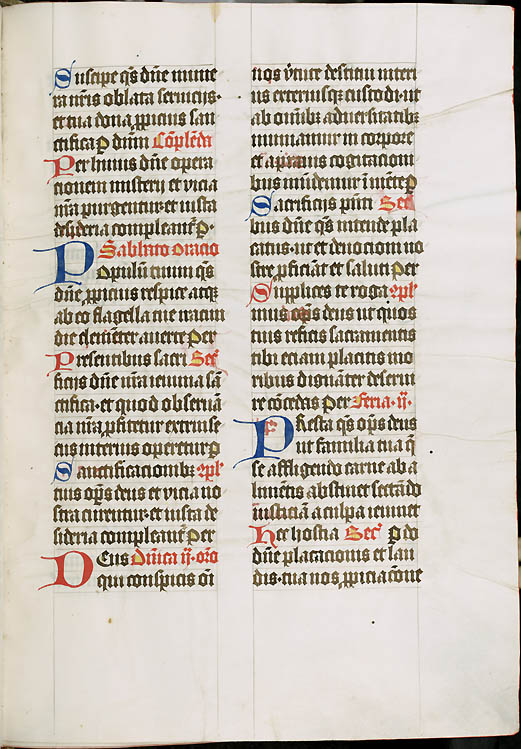 Suscipe q̄s dn̄e mune
ra nr̄is oblata seruicijs·
et tua dona ꝓpicius san
ctifica P dn̄m Cōplen̄d
Per huius dn̄e opera
cionem misterij et vicia
nr̄a purgentur et iusta
desideria compleant᷑ P·
Sabbato oracio
Populū tuum q̄s
dn̄e ꝓpicius respice atq
ab eo flagella tue iracun
die clemēter auerte Per
Presentibus sacri Sec̄
ficijs dn̄e nr̄a ieiunia sā
ctifica· et quod obseruā
cia nr̄a ꝓfitetur extrinse
cus interius operetur P
Sanctificacionibꝫ 2pl̄
tuis op̄s deus et vicia no
stra curentur· et iusta de
sideria compleant᷑ Per
DEus Dn̄ica ij· or̄o
qui conspicis oı̄
nos v̄tute destitui interi
us exteriusqꝫ custodi· ut
ab om̄ibꝫ aduersitatibꝫ
muniamur in corpore
et a prauis cogitacioni
bus mūdemur ī mēte P
Sacrificijs pn̄ti Sec̄
bus dn̄e q̄s intende pla
catus· ut et deuocioni no
stre ꝓficiāt et saluti Per
Supplices te roga 2pl̄
mus op̄s deus ut quos
tuis reficis sacramentis
tibi eciam placitis mo
ribus dignāter deserui
re cōcedas Per Feria· ij·
PResta q̄s op̄s deus
ut familia tua q̄
se affligendo carne ab a
limētis abstinet sectādo
iusticiā a culpa ieiunet
Hec hostia Sec̄ P do
dn̄e placacionis et lau
dis· tua nos ꝓpicia cōne